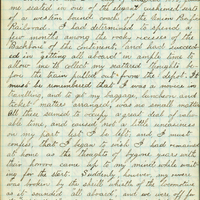 me seated in one of the elegant cushioned seats
of a western bound coach of the Union Pacific
Railroad. I had determined to spend a
few months among the rocky recesses of the
Backbone of the continent, and had succeed
ed in getting all aboard in ample time to
allow me to collect my scattered thoughts be
fore the train pulled out from the depot. It
must be remembered that I was a novice in
traveling, and to get my baggage, lunch and
ticket matters arranged, was no small matter
all these seemed to occupy a great deal of valu
able time, and caused not a little uneasiness
on my part lest I be left, and I must
confess, that I began to wish I had remained
at home as the thoughts of bygone years with
their joys came up to my mind while wait
ing for the start. Suddenly however, my
was broken by the shrill whistle of the locomotive
as it sounded all aboard, and we were off for